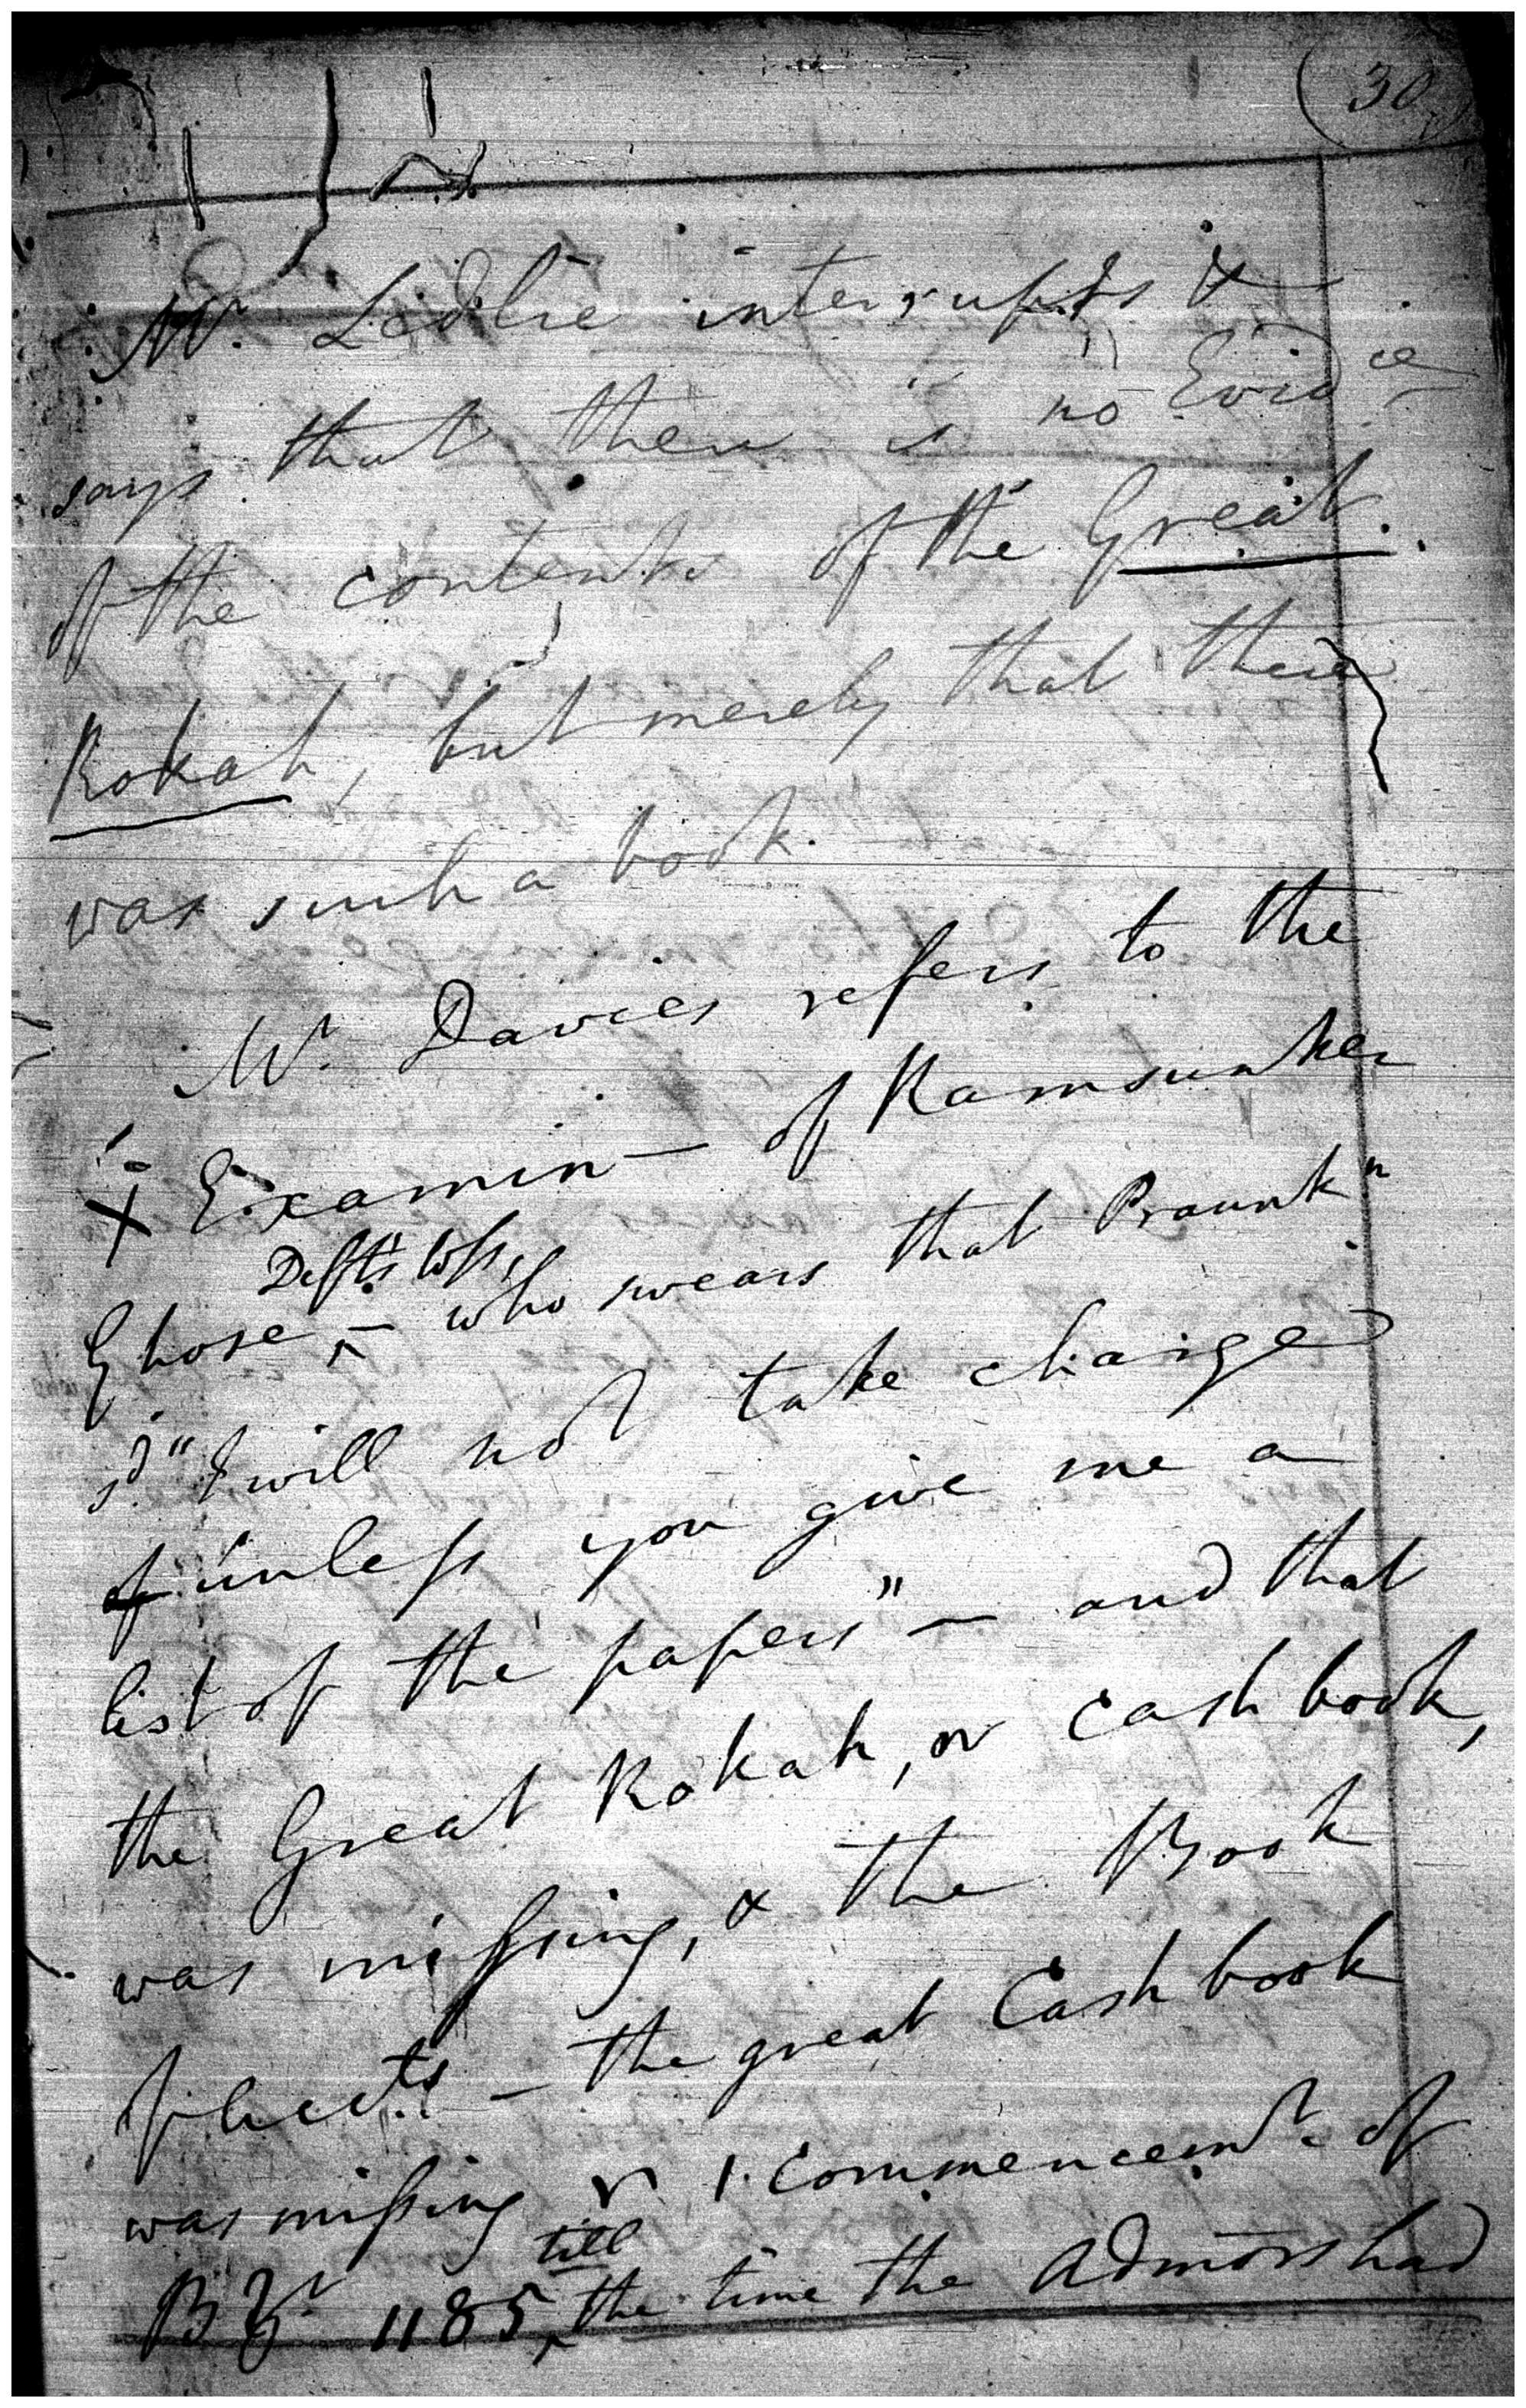 (30)
Mr. Ledlie interrupts &
says that there is no Evidce
of the contents of the Great
Rokah, but merely that there
was such a book.
Mr. Davies refers to the
X Examin— of Ramsunker
Deft's Wss,
Ghose ^ — who swears that Praunkn
sd. "I will not take charge
of unless you give me a
list of the papers" — and that
the Great Rokah, or Cash book,
was missing, & the Book
of
— the great Cash book
was missing commencemt. of
till
1185 ^ the time the Admors had